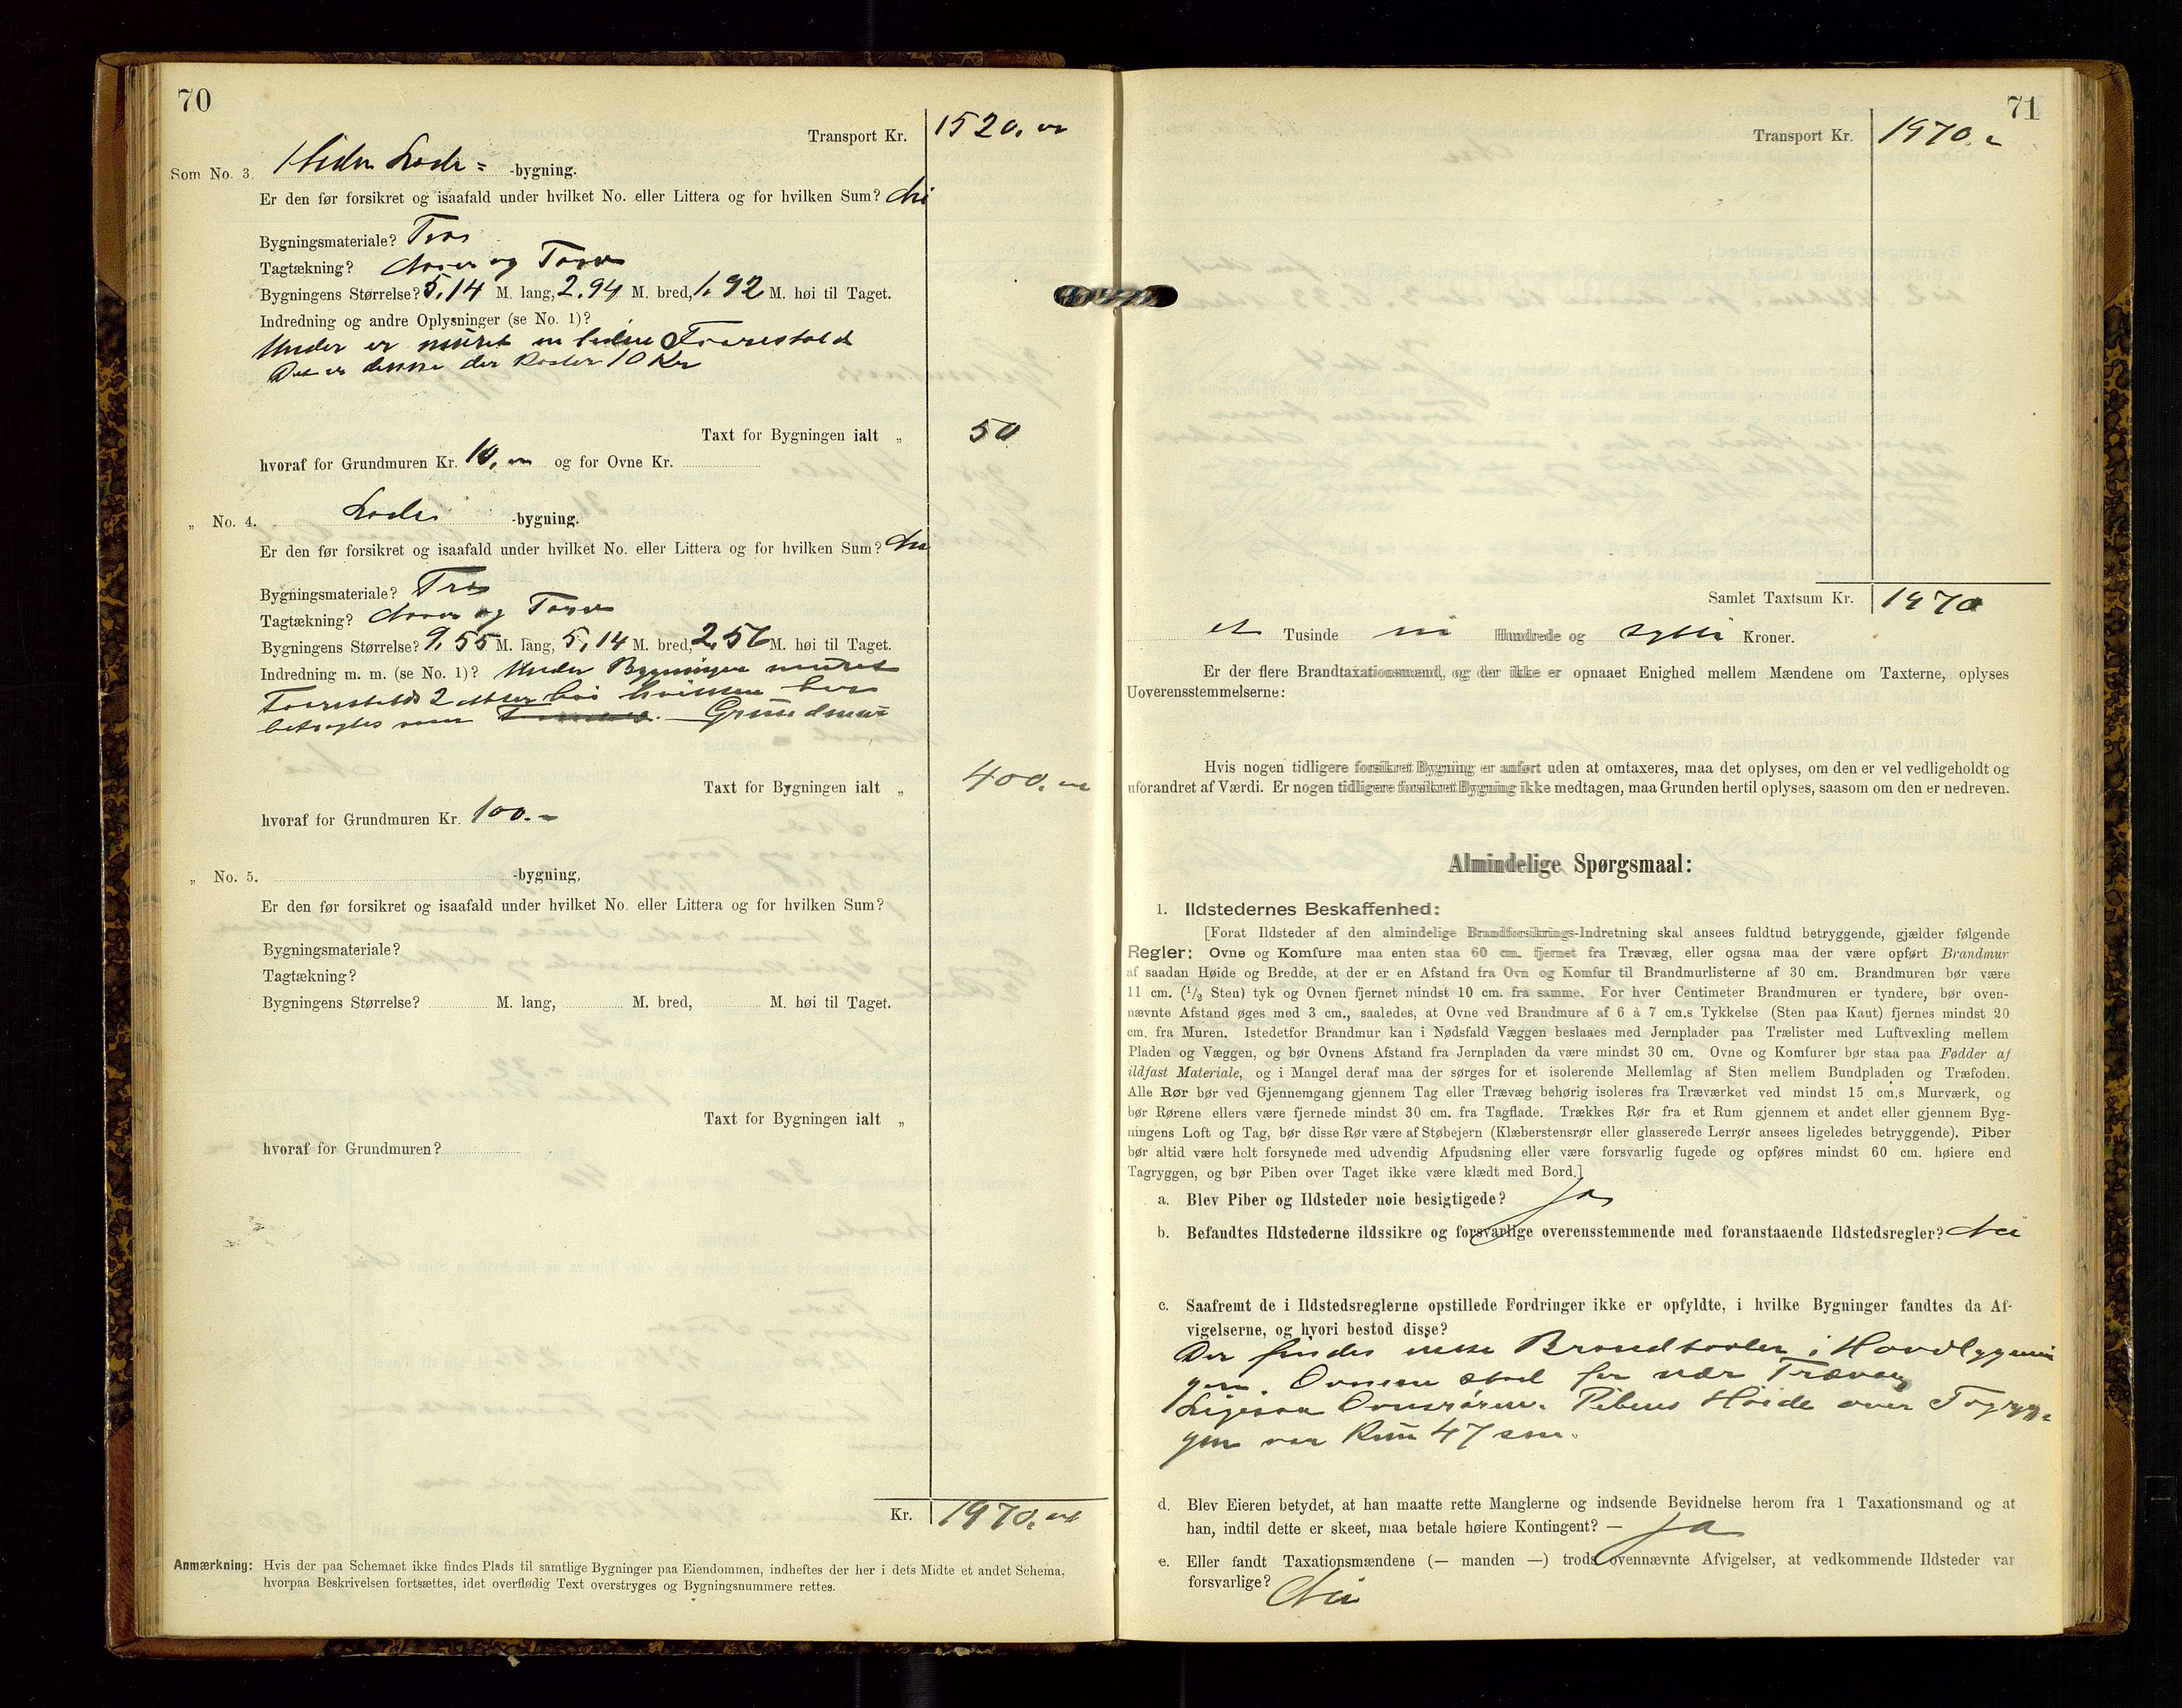 70
Transport Kr. 1520.
Som No. 3. Liden Lade= -bygning.
Er den før forsikret og isaafald under hvilket No. eller Littera og for hvilken Sum? Nei
Bygningsmateriale? Træ
Tagtækning? Næver og Torv
Bygningens Størrelse? 5,14 M. lang, 2,94 M. bred, 1,92 M. høi til Taget.
Indredning og andre Oplysninger (se No. 1)?
Under er muret en liden Faarestald
Det er denne der koster 10 Kr
Taxt for Bygningen ialt „ 50
hvoraf for Grundmuren Kr. 10, og for Ovne Kr.
„ No. 4. Lade -bygning.
Er den før forsikret og isaafald under hvilket No. eller Littera og for hvilken Sum? Nei
Bygningsmateriale? Træ
Tagtækning? Næver og Torv
Bygningens Størrelse? 9,55 M. lang, 5,14 M. bred, 2,56 M. høi til Taget.
Indredning m. m. (se No. 1)? Under Bygningen muret
Faarestald 2 hvilken her
betragtes som Grundmur
Taxt for Bygningen ialt „ 400.
hvoraf for Grundmuren Kr. 100.-
„ No. 5. -bygning.
Er den før forsikret og isaafald under hvilket No. eller Littera og for hvilken Sum?
Bygningsmateriale?
Tagtækning?
Bygningens Størrelse? M. lang, M. bred, M. høi til Taget.
Taxt for Bygningen ialt „
hvoraf for Grundmuren?
Kr. 1970,
Anmærkning: Hvis der paa Schemaet ikke findes Plads til samtlige Bygninger paa Eiendommen, indheftes der her i dets Midte et andet Schema,
hvorpaa Beskrivelsen fortsættes, idet overflødig Text overstryges og Bygningsnummere rettes.
71
Transport Kr. 1970.
Samlet Taxtsum Kr. 1970
et Tusinde ni Hundrede og sytti Kroner.
Er der flere Brandtaxationsmænd, og der ikke er opnaaet Enighed mellem Mændene om Taxterne, oplyses
Uoverensstemmelserne:
Hvis nogen tidligere forsikret Bygning er anført uden at omtaxeres, maa det oplyses, om den er vel vedligeholdt og
uforandret af Værdi. Er nogen tidligere forsikret Bygning ikke medtagen, maa Grunden hertil oplyses, saasom om den er nedreven.
Almindelige Spørgsmaal:
1. Ildstedernes Beskaffenhed:
[Forat Ildsteder af den almindelige Brandforsikrings-Indretning skal ansees fuldtud betryggende, gjælder følgende
Regler: Ovne og Komfure maa enten staa 60 cm. fjernet fra Trævæg, eller ogsaa maa der være opført Brandmur
af saadan Høide og Bredde, at der er en Afstand fra Ovn og Komfur til Brandmurlisterne af 30 cm. Brandmuren bør være
11 cm. (1/2 Sten) tyk og Ovnen fjernet mindst 10 cm. fra samme. For hver Centimeter Brandmuren er tyndere, bør oven-
nævnte Afstand øges med 3 cm., saaledes, at Ovne ved Brandmure af 6 à 7 cm.s Tykkelse (Sten paa Kant) fjernes mindst 20
cm. fra Muren. Istedetfor Brandmur kan i Nødsfald Væggen beslaaes med Jernplader paa Trælister med Luftvexling mellem
Pladen og Væggen, og bør Ovnens Afstand fra Jernpladen da være mindst 30 cm. Ovne og Komfurer bør staa paa Fødder af
ildfast Materiale, og i Mangel deraf maa der sørges for et isolerende Mellemlag af Sten mellem Bundpladen og Træfoden.
Alle Rør bør ved Gjennemgang gjennem Tag eller Trævæg behørig isoleres fra Træværket ved mindst 15 cm.s Murværk, og
bør Rørene ellers være fjernede mindst 30 cm. fra Tagflade. Trækkes Rør fra et Rum gjennem et andet eller gjennem Byg-
ningens Loft og Tag, bør disse Rør være af Støbejern (Klæberstensrør eller glasserede Lerrør ansees ligeledes betryggende). Piber
bør altid være helt forsynede med udvendig Afpudsning eller være forsvarlig fugede og opføres mindst 60 cm. høiere end
Tagryggen, og bør Piben over Taget ikke være klædt med Bord.]
a. Blev Piber og Ildsteder nøie besigtigede? Ja
b. Befandtes Ildstederne ildssikre og forsvarlige overensstemmende med foranstaaende Ildstedsregler? Nei
c. Saafremt de i Ildstedsreglerne opstillede Fordringer ikke er opfyldte, i hvilke Bygninger fandtes da Af-
vigelserne, og hvori bestod disse?
Der findes ikke i Hovedbygnin
gen. Ovnene stod for nær Trævæg
Ligesaa Ovnsrørene. Pibens Høide over Tagryg=
gen var kun 47 cm.
d. Blev Eieren betydet, at han maatte rette Manglerne og indsende Bevidnelse herom fra 1 Taxationsmand og at
han, indtil dette er skeet, maa betale høiere Kontingent? — Ja
e. Eller fandt Taxationsmændene (— manden —) trods ovennævnte Afvigelser, at vedkommende Ildsteder var
forsvarlige? Nei